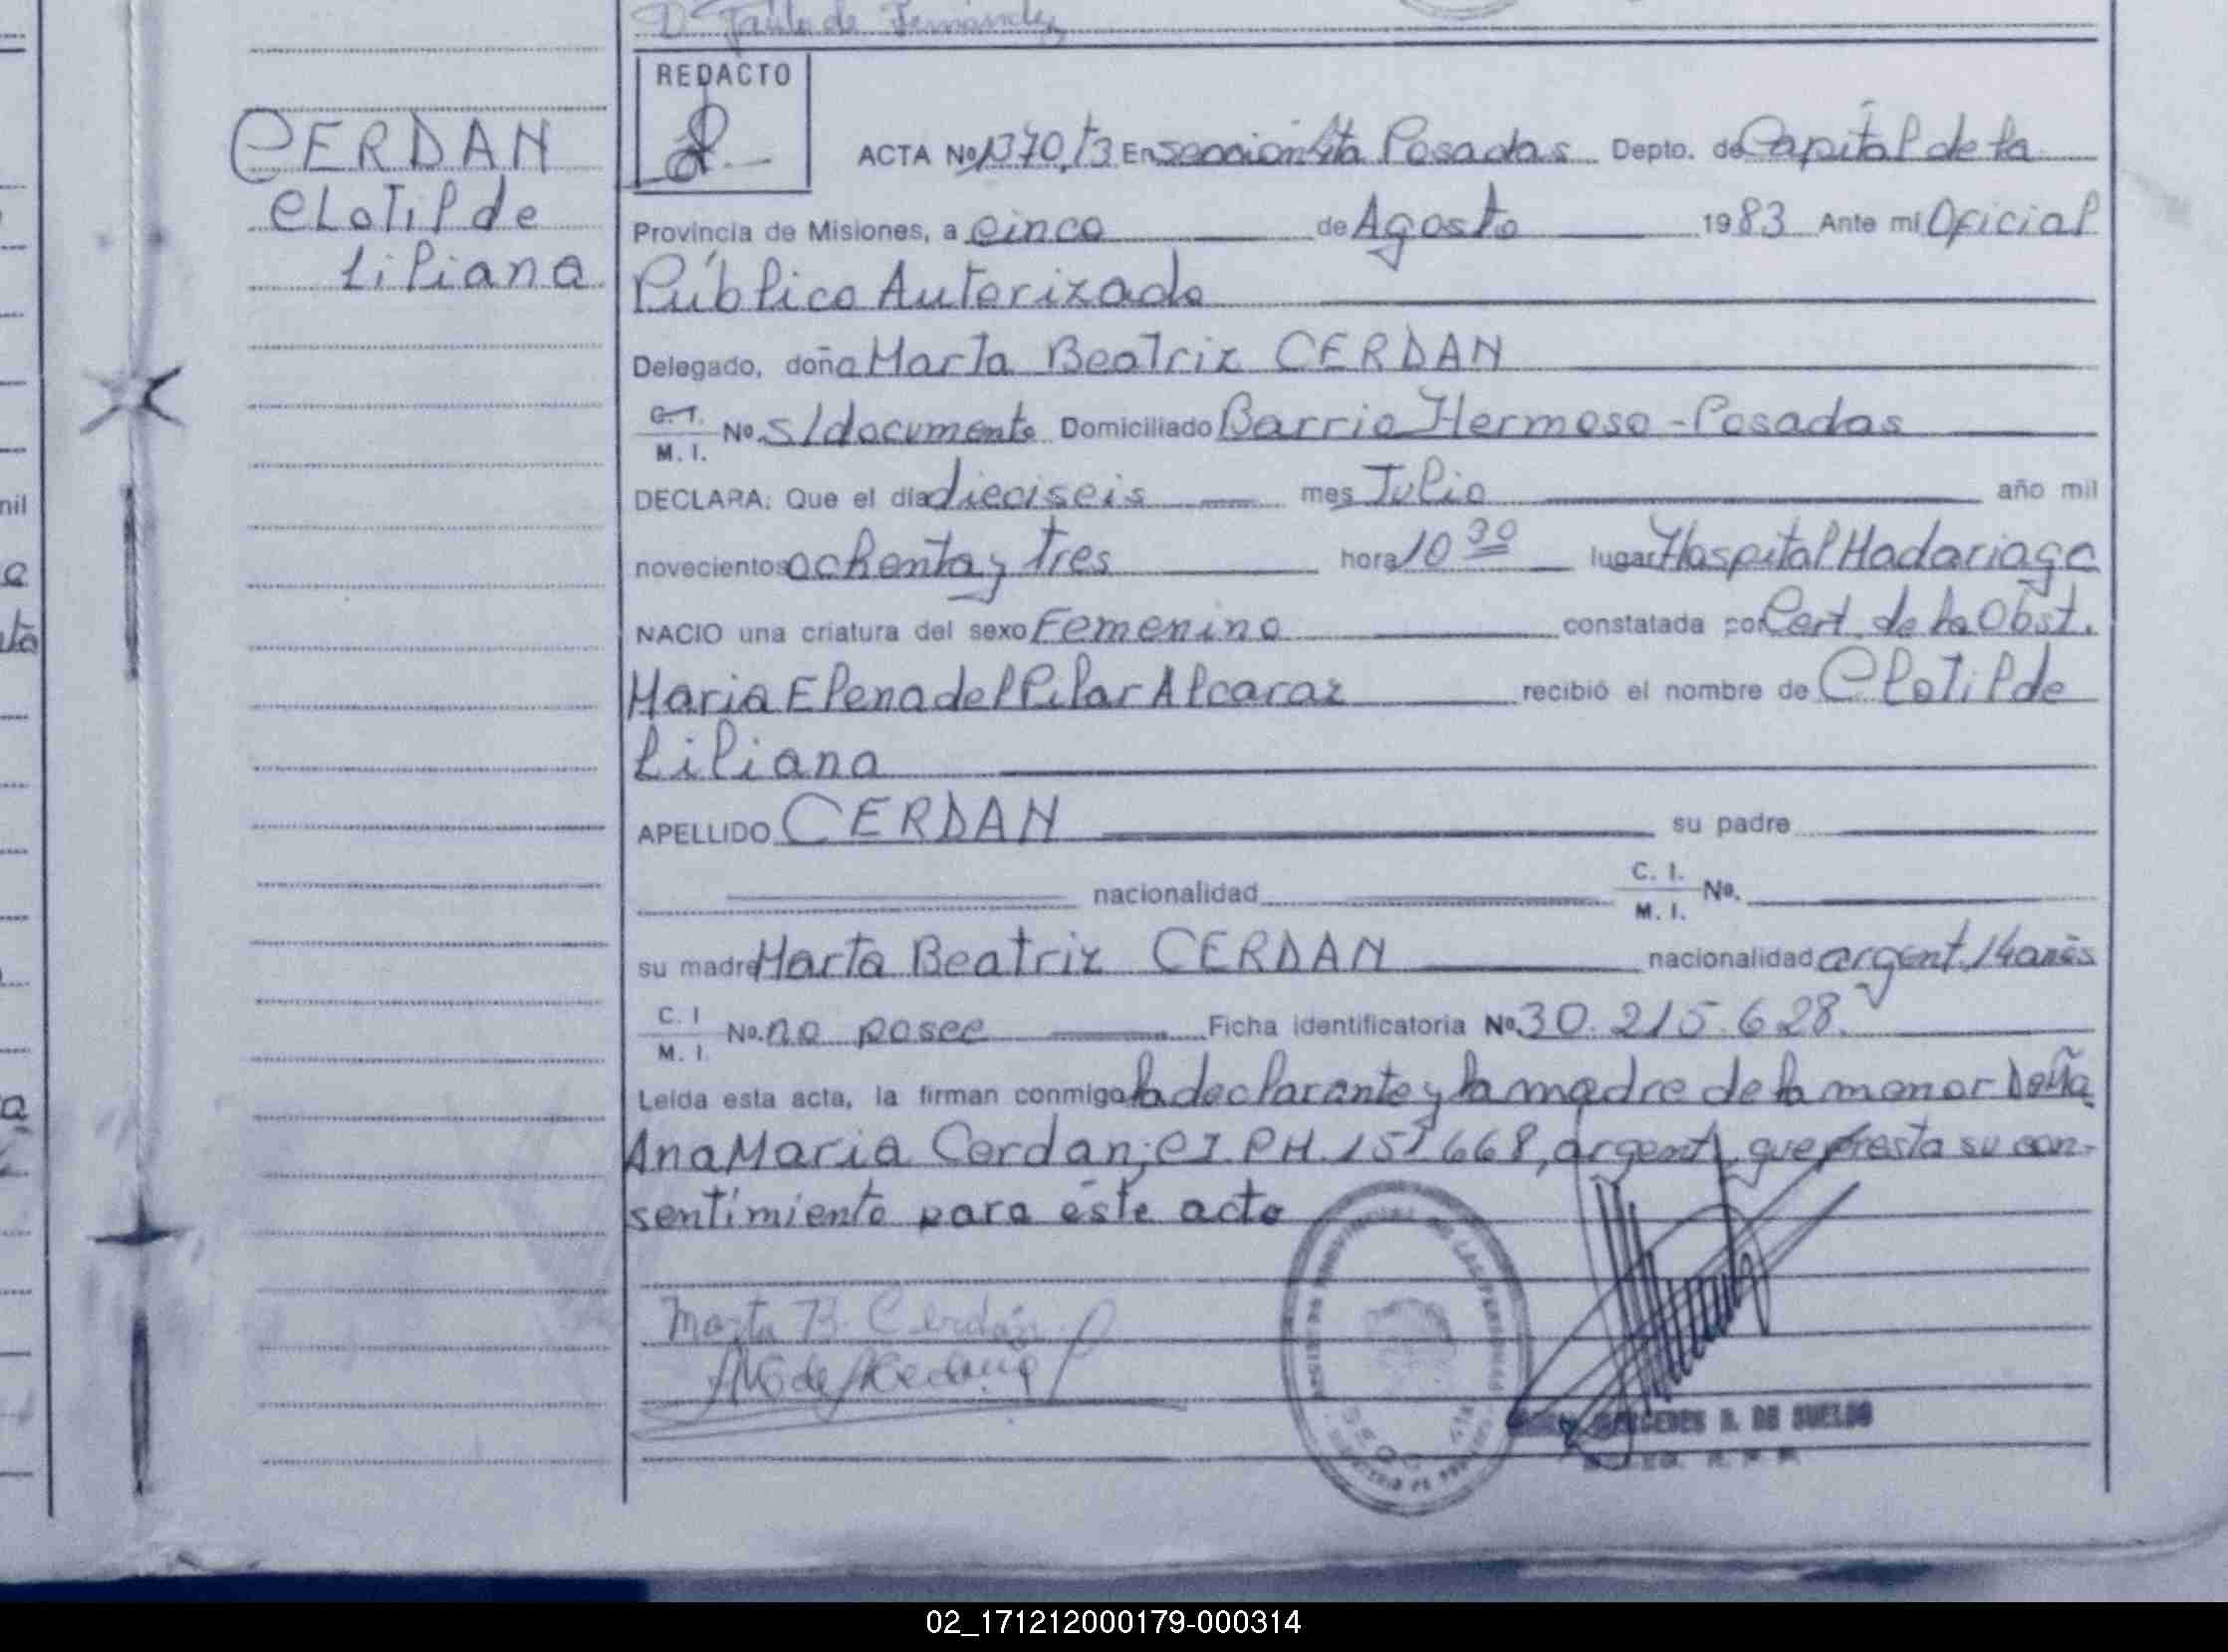 REDACTO
CERDAN
CLotilde
Liliana
ACTA Nº 1370, t3 En sección 4ta Posadas Depto. de Capital de la
Provincia de Misiones, a cinco de Agosto 1983 Ante mí Oficial
Público Autorizado
Delegado, doña Marta Beatriz CERDAN
C. I. M. I. Nº s/documento Domiciliado Barrio Hermoso - Posadas
DECLARA: Que el día dieciseis mes Julio año mil
novecientos ochenta y tres hora 10 30 lugar Hospital Madariaga
NACIO una criatura del sexo Femenino constatada por Cert. de la Obst.
Maria Elena del Pilar Alcaraz recibió el nombre de Clotilde
Liliana
APELLIDO CERDAN su padre
nacionalidad C. I. M. I. Nº.
su madre Marta Beatriz CERDAN nacionalidad argent. 14 años
C. I M. I. Nº. no posee Ficha identificatoria Nº 30.215.628.
Leída esta acta, la firman conmigo la declarante y la madre de la menor Doña
Ana Maria Cerdan; CI. PM. 151668, argent, que presta su con-
sentimiento para éste acto
Marta B. Cerdán
MERCEDES R. DE SUELDO
02_171212000179-000314